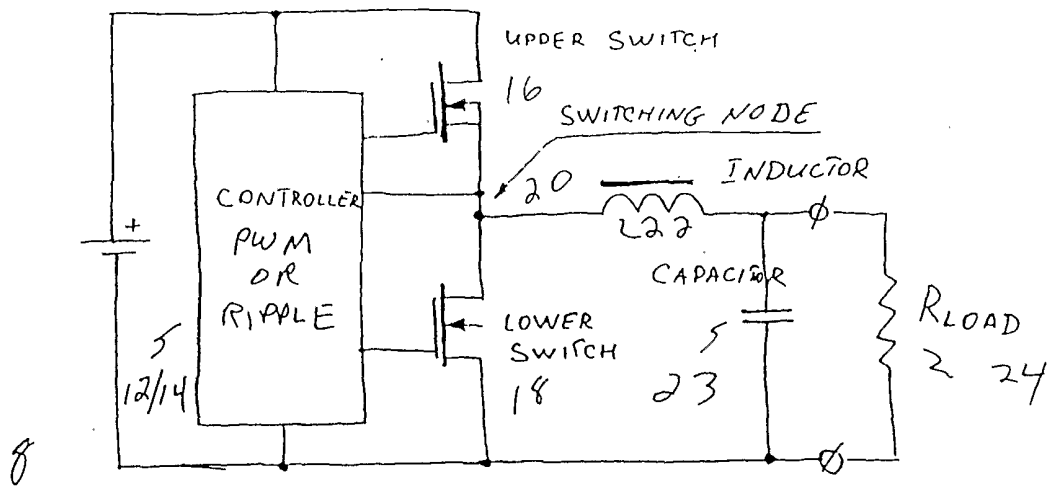 UPPER SWITCH
16
SWITCHING NODE
20
INDUCTOR
22
+
CONTROLLER
PWM
OR
RIPPLE
12/14
LOWER
SWITCH
18
CAPACITOR
23
RLOAD
24
8